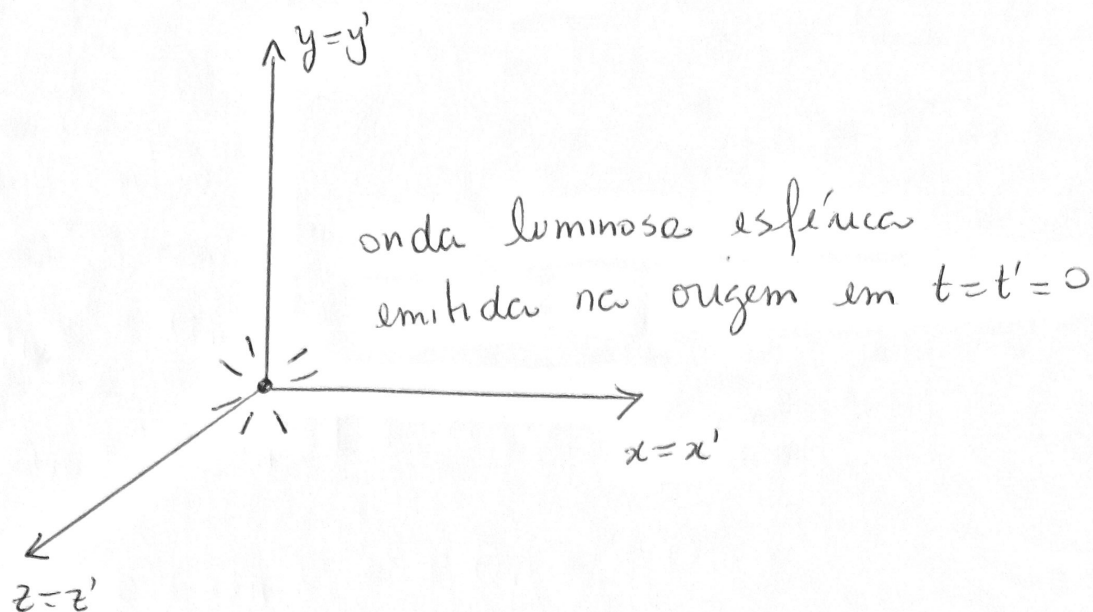 y=y'
onda luminosa esférica
emitida na origem em t=t'=0
x=x'
z=z'